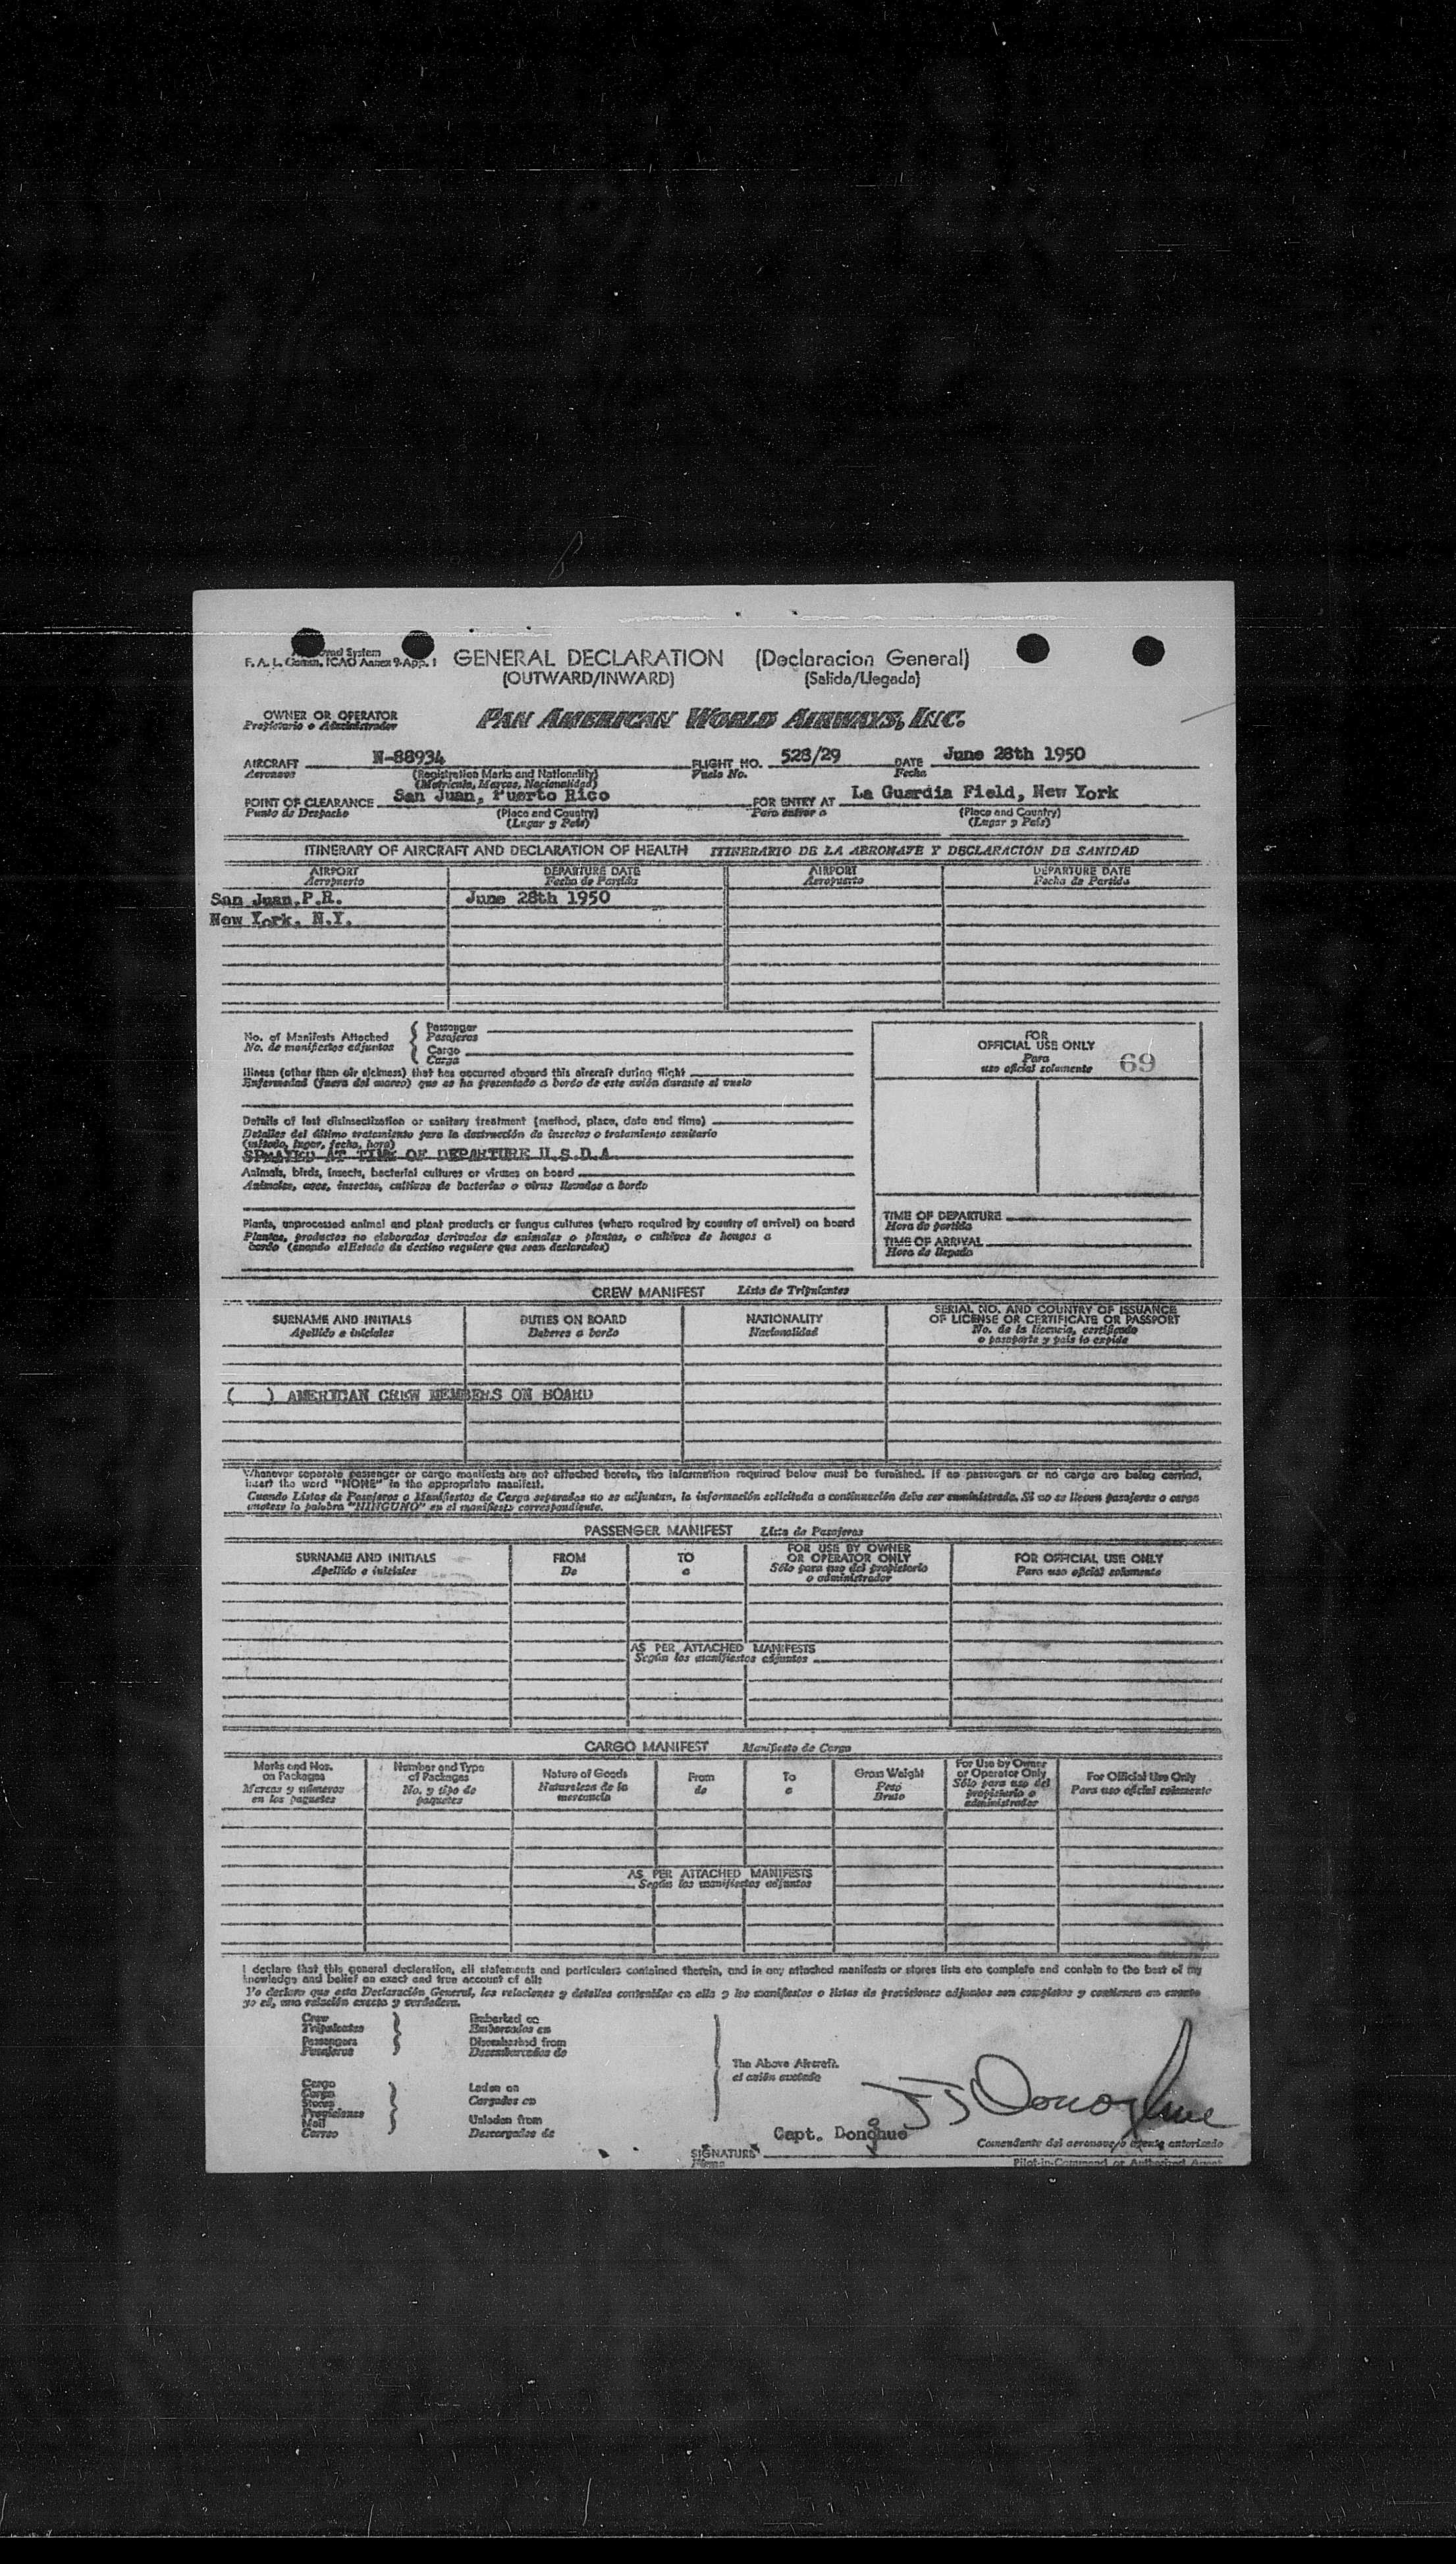 System
F. A. L. Comm. ICAO Annex 9-App. 1
GENERAL DECLARATION (Declaracion General)
(OUTWARD/INWARD) (Salida/Llegada)
OWNER OR OPERATOR
Propietario o Administrador
PAN AMERICAN WORLD AIRWAYS, INC.
AIRCRAFT N-88934 FLIGHT NO. 528/29 DATE June 28th 1950
Aeronave (Registration Marks and Nationality) Vuelo No. Fecha
(Matricula, Marcas, Nacionalidad)
POINT OF CLEARANCE San Juan, Puerto Rico FOR ENTRY AT La Guardia Field, New York
Punto de Despacho (Place and Country) Para entrar a (Place and Country)
(Lugar y País) (Lugar y País)
ITINERARY OF AIRCRAFT AND DECLARATION OF HEALTH ITINERARIO DE LA AERONAVE Y DECLARACION DE SANIDAD
AIRPORT DEPARTURE DATE AIRPORT DEPARTURE DATE
Aeropuerto Fecha de Partida Aeropuerto Fecha de Partida
San Juan.P.R. June 28th 1950
New York, N.Y.
No. of Manifests Attached
No. de manifiestos adjuntos
Passenger
Pasajeros
Cargo
Carga
Illness (other than air sickness) that has occurred aboard this aircraft during flight
Enfermedad (fuera del mareo) que se ha presentado a bordo de este avión durante el vuelo
Details of last disinsectization or sanitary treatment (method, place, date and time)
Detalles del último tratamiento para la destrucción de insectos o tratamiento sanitario
(método, lugar, fecha, hora)
SPRAYED AT TIME OF DEPARTURE U.S.D.A.
Animals, birds, insects, bacterial cultures or viruses on board
Animales, aves, insectos, cultivos de bacterias o virus llevados a bordo
Plants, unprocessed animal and plant products or fungus cultures (where required by country of arrival) on board
Plantas, productos no elaborados derivados de animales o plantas, o cultivos de hongos a
bordo (cuando el Estado de destino requiere que sean declarados)
FOR
OFFICIAL USE ONLY
Para
uso oficial solamente
69
TIME OF DEPARTURE
Hora de partida
TIME OF ARRIVAL
Hora de llegada
CREW MANIFEST Lista de Tripulantes
SURNAME AND INITIALS DUTIES ON BOARD NATIONALITY SERIAL NO. AND COUNTRY OF ISSUANCE
Apellido e iniciales Deberes a bordo Nacionalidad OF LICENSE OR CERTIFICATE OR PASSPORT
No. de la licencia, certificado
o pasaporte y pais lo expide
( ) AMERICAN CREW MEMBERS ON BOARD
Whenever separate passenger or cargo manifests are not attached hereto, the information required below must be furnished. If no passengers or no cargo are being carried,
insert the word "NONE" in the appropriate manifest.
Cuando Listas de Pasajeros o Manifiestos de Carga separados no se adjuntan, la información solicitada a continuación debe ser suministrada. Si no se llevan pasajeros o carga
anotese la palabra "NINGUNO" en el manifiesto correspondiente.
PASSENGER MANIFEST Lista de Pasajeros
SURNAME AND INITIALS FROM TO FOR USE BY OWNER FOR OFFICIAL USE ONLY
Apellido e iniciales De a OR OPERATOR ONLY Para uso oficial solamente
Sólo para uso del propietario
o administrador
AS PER ATTACHED MANIFESTS
Según los manifiestos adjuntos
CARGO MANIFEST Manifiesto de Carga
Marks and Nos. Number and Type Nature of Goods From To Gross Weight For Use by Owner For Official Use Only
on Packages of Packages Naturaleza de la de a Peso or Operator Only Para uso oficial solamente
Marcas y números No. y tipo de mercancia Bruto Sólo para uso del
en los paquetes paquetes propietario o
administrador
AS PER ATTACHED MANIFESTS
Según los manifiestos adjuntos
I declare that this general declaration, all statements and particulars contained therein, and in any attached manifests or stores lists are complete and contain to the best of my
knowledge and belief an exact and true account of all:
Yo declaro que esta Declaración General, los relaciones y detalles contenidos en ella y los manifiestos o listas de provisiones adjuntos son completos y contienen en cuanto
yo sé, una relación exacta y verdadera.
Crew Embarked on
Tripulantes Embarcados en
Passengers Disembarked from
Pasajeros Desembarcados de
The Above Aircraft.
el avión anotado
Cargo Laden on
Carga Cargados en
Stores
Provisiones
Mail Unladen from
Correo Descargados de
JJ Donoghue
Capt. Donohue
g
Comandante del aeronave/o agente autorizado
SIGNATURE
Firma
Pilot-in-Command or Authorized Agent